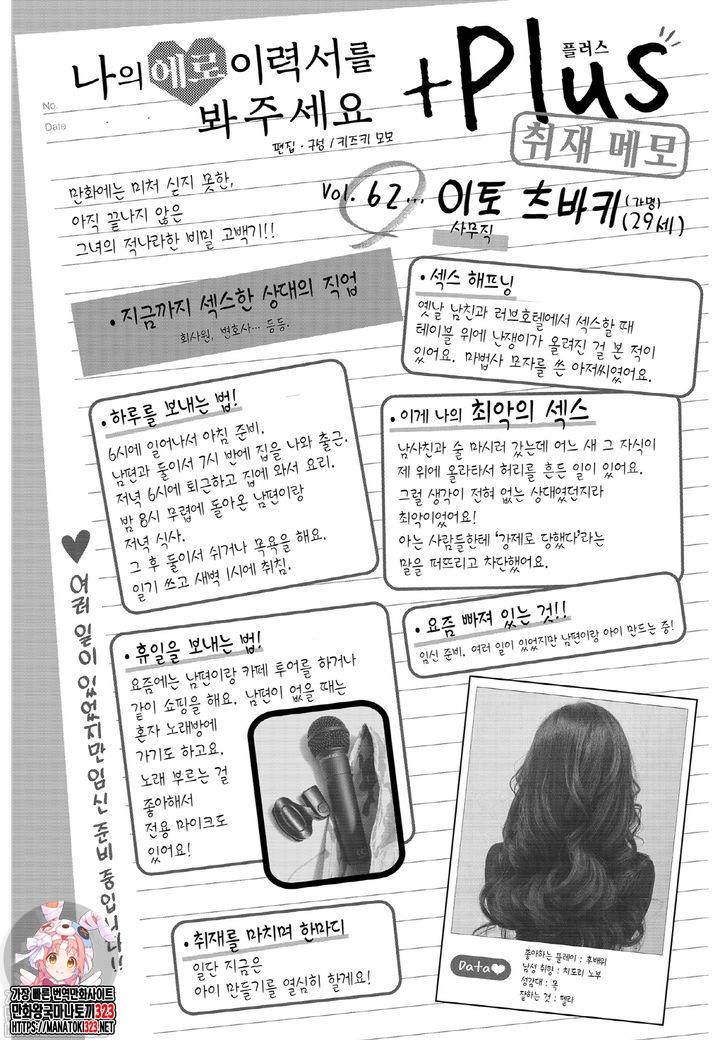 No.
Date
나의 에로 이력서를
봐주세요
+Plus
플러스
편집·구성 / 키즈키 모모
취재 메모
만화에는 미처 싣지 못한,
아직 끝나지 않은
그녀의 적나라한 비밀 고백기!!
Vol. 62... 이토 츠바키 (가명)
(29세)
사무직
• 지금까지 섹스한 상대의 직업
회사원, 변호사... 등등.
• 섹스 해프닝
옛날 남친과 러브호텔에서 섹스할 때
테이블 위에 난쟁이가 올려진 걸 본 적이
있어요. 마법사 모자를 쓴 아저씨였어요.
• 하루를 보내는 법!
6시에 일어나서 아침 준비.
남편과 둘이서 7시 반에 집을 나와 출근.
저녁 6시에 퇴근하고 집에 와서 요리.
밤 8시 무렵에 돌아온 남편이랑
저녁 식사.
그 후 둘이서 쉬거나 목욕을 해요.
일기 쓰고 새벽 1시에 취침.
• 이게 나의 최악의 섹스
남사친과 술 마시러 갔는데 어느 새 그 자식이
제 위에 올라타서 허리를 흔든 일이 있어요.
그럴 생각이 전혀 없는 상대였던지라
최악이었어요!
아는 사람들한테 '강제로 당했다'라는
말을 퍼뜨리고 차단했어요.
• 요즘 빠져 있는 것!!
임신 준비. 여러 일이 있었지만 남편이랑 아이 만드는 중!
• 휴일을 보내는 법!
요즘에는 남편이랑 카페 투어를 하거나
같이 쇼핑을 해요. 남편이 없을 때는
혼자 노래방에
가기도 하고요.
노래 부르는 걸
좋아해서
전용 마이크도
있어요!
♥ 여러 일이 있었지만 임신 준비 중입니다!!
• 취재를 마치며 한마디
일단 지금은
아이 만들기를 열심히 할게요!
Data♥
좋아하는 플레이 : 후배위
남성 취향 : 치도리 노부
성감대 : 목
잘하는 것 : 펠라
가장 빠른 번역만화사이트
만화왕국마나토끼323
HTTPS://MANATOKI323.NET